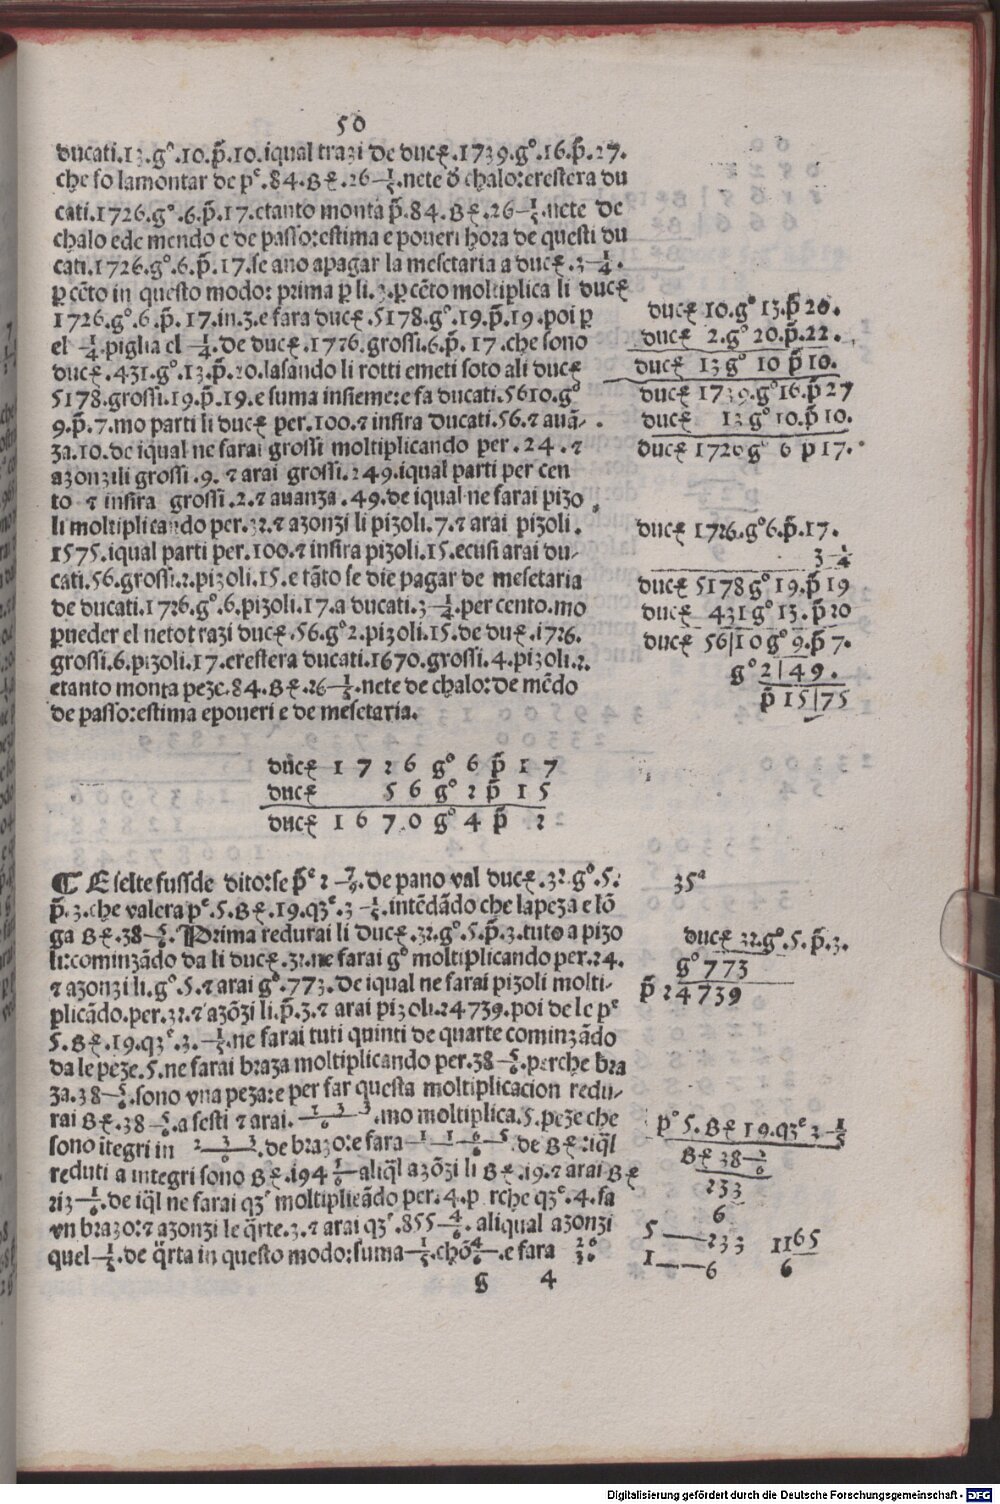 50
ducati.13.g°.10.p̃.10.iqual trazi de ducꝫ.1739.g°.16.p̃.27.
che so lamontar de pᵉ.84.Bꝫ.26 1/2.nete d̄ chalo:e restera du
cati.1726.g°.6.p̃.17.e tanto monta p̃.84.Bꝫ.26 1/2.nete de
chalo e de mendo e de passo:e stima e poueri hora de questi du
cati.1726.g°.6.p̃.17.se ano apagar la mesetaria a ducꝫ.3 1/4.
p cẽto in questo modo: prima p li.3.p cẽto moltiplica li ducꝫ
1726.g°.6.p̃.17.in.3.e fara ducꝫ.5178.g°.19.p̃.19.poi p
el 1/4.piglia el 1/4.de ducꝫ.1726.grossi.6.p̃.17.che sono
ducꝫ.431.g°.13.p̃.20.lasando li rotti e meti soto ali ducꝫ
5178.grossi.19.p̃.19.e suma insieme:e fa ducati.5610.g°
9.p̃.7.mo parti li ducꝫ per.100.⁊ insira ducati.56.⁊ auã-
za.10.de iqual ne farai grossi moltiplicando per.24.⁊
azonzili grossi.9.⁊ arai grossi.249.iqual parti per cen
to ⁊ insira grossi.2.⁊ auanza.49.de iqual ne farai pizo
li moltiplicando per.32.⁊ azonzi li pizoli.7.⁊ arai pizoli.
1575.iqual parti per.100.⁊ insira pizoli.15.e cusi arai du-
cati.56.grossi.2.pizoli.15.e tãto se die pagar de mesetaria
de ducati.1726.g°.6.pizoli.17.a ducati.3 1/4.per cento.mo
p ueder el neto trazi ducꝫ.56.g°2.pizoli.15.de duꝫ.1726.
grossi.6.pizoli.17.e restera ducati.1670.grossi.4.pizoli.2.
e tanto monta peze.84.Bꝫ.26 1/2.nete de chalo:de mẽdo
de passo:e stima e poueri e de mesetaria.
ducꝫ 10.g° 13.p̃ 20.
ducꝫ 2.g° 20.p̃.22.
ducꝫ 13 g° 10 p̃ 10.
ducꝫ 1739.g°16.p̃ 27
ducꝫ 13 g° 10.p̃ 10.
ducꝫ 1726 g° 6 p 17.
ducꝫ 1726.g°6.p̃.17.
3 1/4
ducꝫ 5178 g° 19.p̃ 19
ducꝫ 431 g° 13.p̃ 20
ducꝫ 56|10 g° 9.p̃ 7.
g° 2|49.
p̃ 15|75
ducꝫ 1726 g° 6 p̃ 17
ducꝫ 56 g° 2 p̃ 15
ducꝫ 1670 g° 4 p̃ 2
¶ E selte fussde dito:se p̃ᵉ 2 .de pano val ducꝫ.32.g°.5.
p̃.3.che valera pᵉ.5.Bꝫ.19.qꝫᵉ.3 1/5.intẽdãdo che la peza e lõ
ga Bꝫ.38 5/6.Prima redurai li ducꝫ.32.g°.5.p̃.3.tuto a pizo
li:cominzãdo da li ducꝫ.32.ne farai g° moltiplicando per.24.
⁊ azonzi li.g°.5.⁊ arai g°.773.de iqual ne farai pizoli molti-
plicãdo.per.32.⁊ azõzi li.p̃.3.⁊ arai pizoli.24739.poi de le pᵉ
5.Bꝫ.19.qꝫᵉ.3. 1/5.ne farai tuti quinti de quarte cominzãdo
da le peze.5.ne farai braza moltiplicando per.38 5/6.perche bra
za.38 5/6.sono vna peza:e per far questa moltiplicacion redu-
rai Bꝫ.38 5/6.a sesti ⁊ arai. .mo moltiplica.5.peze che
sono ĩtegri in 233/6.de brazo:e fara 1165/6.de Bꝫ:iq̃l
reduti a integri sono Bꝫ.194 1/6 aliq̃l azõzi li Bꝫ.19.⁊ arai Bꝫ
213 1/6.de iq̃l ne farai qꝫᵉ moltiplicãdo per.4.p rche qꝫᵉ.4.fa
vn brazo:⁊ azonzi le q̃rte.3.⁊ arai qꝫᵉ.855 4/6.aliqual azonzi
quel 1/5.de q̃rta in questo modo:suma 1/5.chõ 4/6.e fara 26/30.
g 4
35ᵃ
ducꝫ 32.g°.5.p̃.3.
g° 773
p̃ 24739
pᵉ 5.Bꝫ 19.qꝫᵉ 3 1/5
Bꝫ 38 5/6
233
6
5 — 233 1165
1 — 6 6
Digitalisierung gefördert durch die Deutsche Forschungsgemeinschaft - DFG